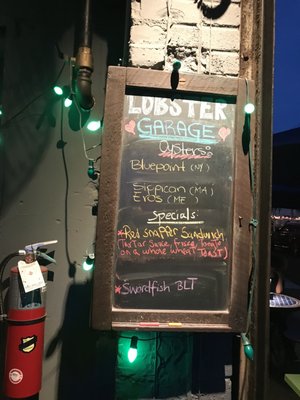 LOBSTER
GARAGE
Oysters:
Bluepoint (NY)
Sippican (MA)
Eros (ME)
Specials:
*Red snapper Sandwich
(Tartar Sauce, frisee,
on a whole wheat TOAST)
*Swordfish BLT